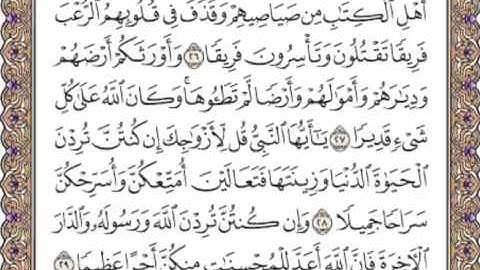 أَهْلِ ٱلْكِتَٰبِ مِن صَيَاصِيهِمْ وَقَذَفَ فِي قُلُوبِهِمُ ٱلرُّعْبَ
فَرِيقًا تَقْتُلُونَ وَتَأْسِرُونَ فَرِيقًا ٢٦ وَأَوْرَثَكُمْ أَرْضَهُمْ
وَدِيَٰرَهُمْ وَأَمْوَٰلَهُمْ وَأَرْضًا لَّمْ تَطَـُٔوهَا ۚ وَكَانَ ٱللَّهُ عَلَىٰ كُلِّ
شَىْءٍ قَدِيرًا ٢٧ يَٰٓأَيُّهَا ٱلنَّبِىُّ قُل لِّأَزْوَٰجِكَ إِن كُنتُنَّ تُرِدْنَ
ٱلْحَيَوٰةَ ٱلدُّنْيَا وَزِينَتَهَا فَتَعَالَيْنَ أُمَتِّعْكُنَّ وَأُسَرِّحْكُنَّ
سَرَاحًا جَمِيلًا ٢٨ وَإِن كُنتُنَّ تُرِدْنَ ٱللَّهَ وَرَسُولَهُۥ وَٱلدَّارَ
ٱلْءَاخِرَةَ فَإِنَّ ٱللَّهَ أَعَدَّ لِلْمُحْسِنَٰتِ مِنكُنَّ أَجْرًا عَظِيمًا ٢٩